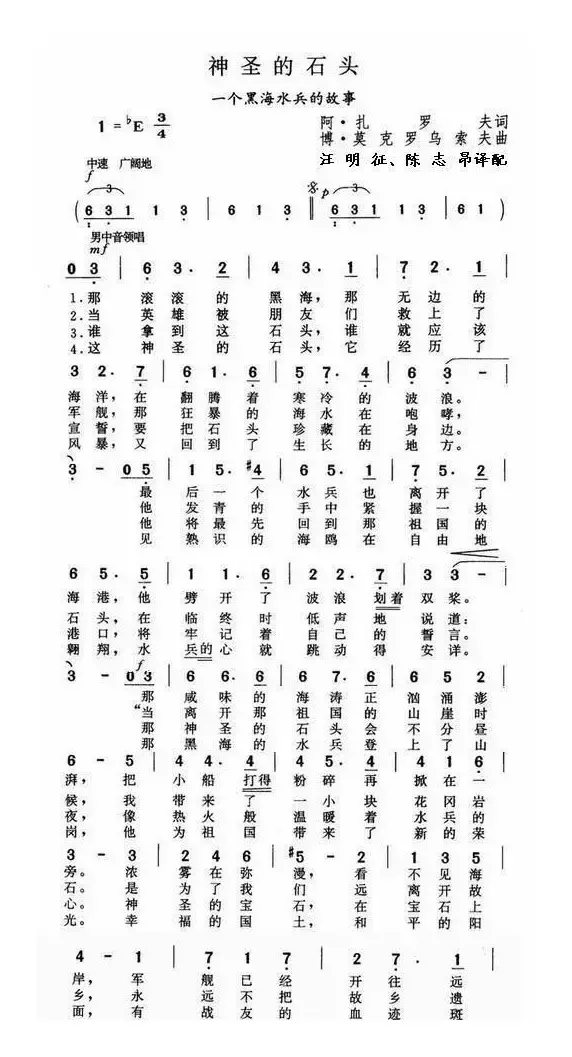 神圣的石头
一个黑海水兵的故事
1=♭E 3/4
阿·扎罗夫词
博·莫克罗乌索夫曲
汪明征、陈志昂译配
中速 广阔地
f
( 6 3 1 1 3 | 6 1 3 ‖ p 6 3 1 1 3 | 6 1 )
男中音领唱
mf
0 3 | 6 3· 2 | 4 3· 1 | 7 2· 1 |
1.那 滚滚的 黑海，那 无边的
2.当 英雄被 朋友们 救上了
3.谁 拿到这 石头，谁 就应该
4.这 神圣的 石头，它 经历了
3 2· 7 | 6 1· 6 | 5 7· 4 | 6 3 - |
海洋，在 翻腾着 寒冷的 波浪。
军舰，那 狂暴的 海水在 咆哮，
宣誓，要 把石头 珍藏在 身边。
风暴，又 回到了 生长的 地方。
3 - 0 5 | 1 5· #4 | 6 5· 1 | 7 5· 2 |
最 后一个 水兵也 离开了
他 发青的 手中紧 握一块
他 将最先 回到那 祖国的
见 熟识的 海鸥在 自由地
6 5· 5 | 1 1· 6 | 2 2· 7 | 3 3 - |
海港，他 劈开了 波浪划着 双桨。
石头，在 临终时 低声地 说道：
港口，将 牢记着 自己的 誓言。
翱翔，水 兵的心就 跳动得 安详。
f
3 - 0 3 | 6 6· 6 | 7 6· 7 | 1 6 2 |
那 咸味的 海涛正 汹涌澎
“当 离开那 祖国的 山崖时
那 神圣的 石头会 不分昼
那 黑海的 水兵登 上了山
6 - 5 | 4 4· 4 | 4 5· 4 | 4 1 6 |
湃，把 小船打得 粉碎再 掀在一
候，我 带来了 一小块 花冈岩
夜，像 热火般 温暖着 水兵的
岗，他 为祖国 带来了 新的荣
3 - 3 | 2 4 6 | #5 - 2 | 1 3 5 |
旁。浓 雾在弥 漫，看 不见海
石。是 为了我 们 远 离开故
心。神 圣的宝 石，在 宝石上
光。幸 福的国 土，和 平的阳
4 - 1 | 7 1 7 | 2 7· 1 |
岸，军 舰已经 开往远
乡，永 远不把 故乡遗
面，有 战友的 血迹斑